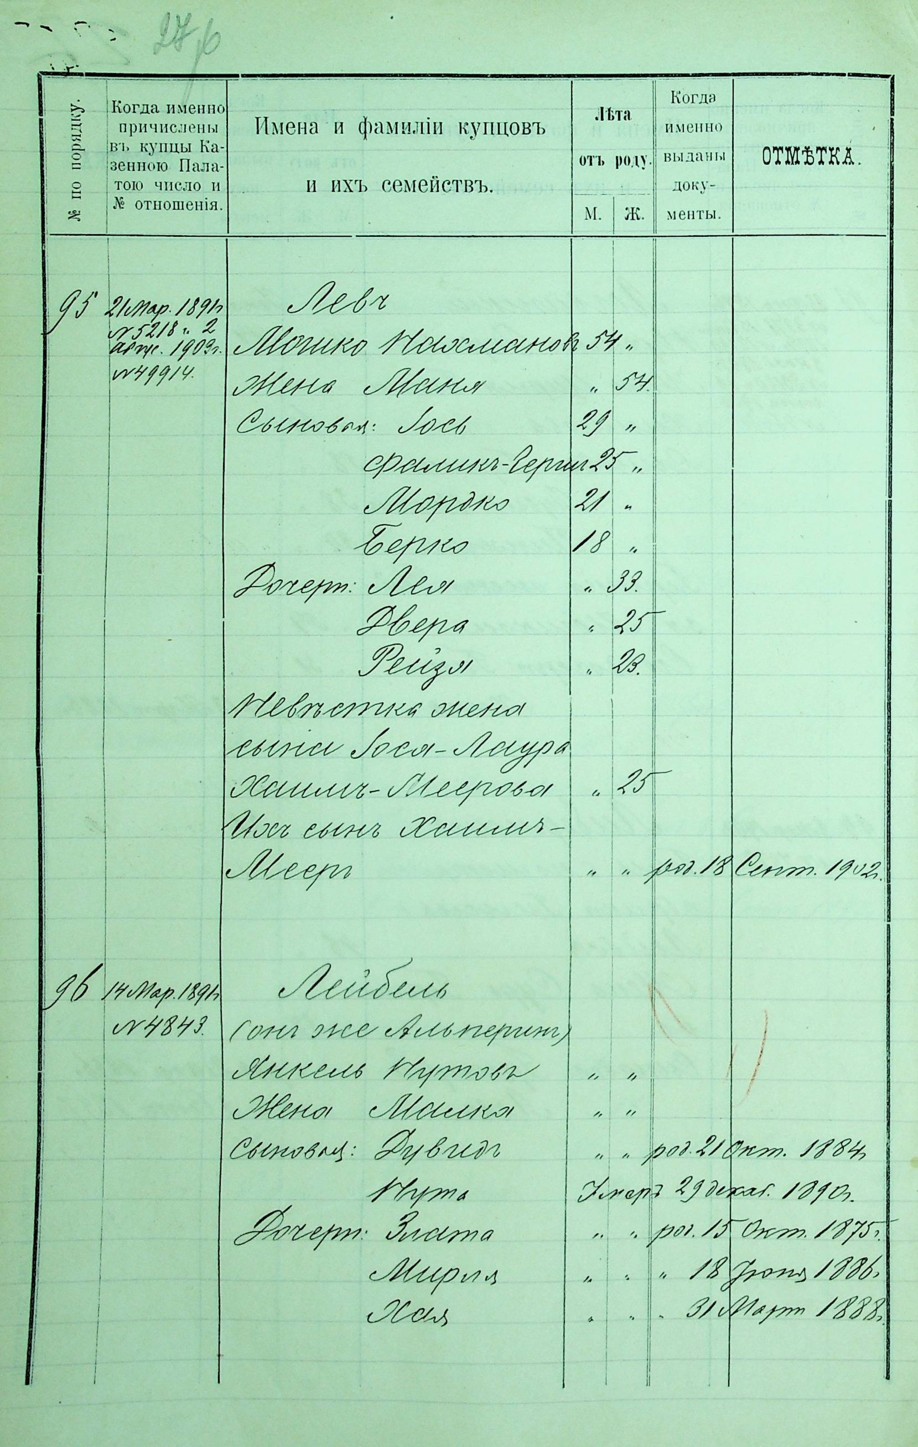 27
№ по порядку.
Когда именно
причислены
въ купцы Ка-
зенною Пала-
тою число и
№ отношенія.
Имена и фамиліи купцовъ
и ихъ семействъ.
Лѣта
отъ роду.
М. Ж.
Когда
именно
выданы
доку-
менты.
ОТМѢТКА.
95 21 Мар. 1891г. Левъ
№ 5218 " 2
Август. 1903г. Мошко Нахмановъ 54 "
№ 49914. Жена Маня " 54.
Сыновья: Іось 29 "
Фаликъ-Герш 25 "
Мордко 21 "
Берко 18 "
Дочери: Лея " 33.
Двера " 25
Рейзя " 23.
Невѣстка жена
сына Іося-Лаура
Хаимъ-Меерова " 25
Ихъ сынъ Хаимъ-
Мееръ " " род. 18 Сент. 1902г.
96 14 Мар. 1891г. Лейбель
№ 4843. (онъ же Альперинъ)
Янкель Нутовъ " "
Жена Малка " "
Сыновья: Дувидъ " " род. 21 Окт. 1884г
Нута Умеръ 29 декаб. 1890г.
Дочери: Злата " " род. 15 Окт. 1875г.
Мирля " " " 18 Іюня 1886г
Хая " " " 31 Март 1888г.